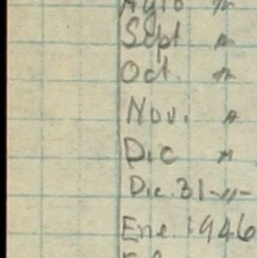 Agto "
Sept "
Oct. "
Nov. "
Dic "
Dic. 31 -"-
Ene. 1946